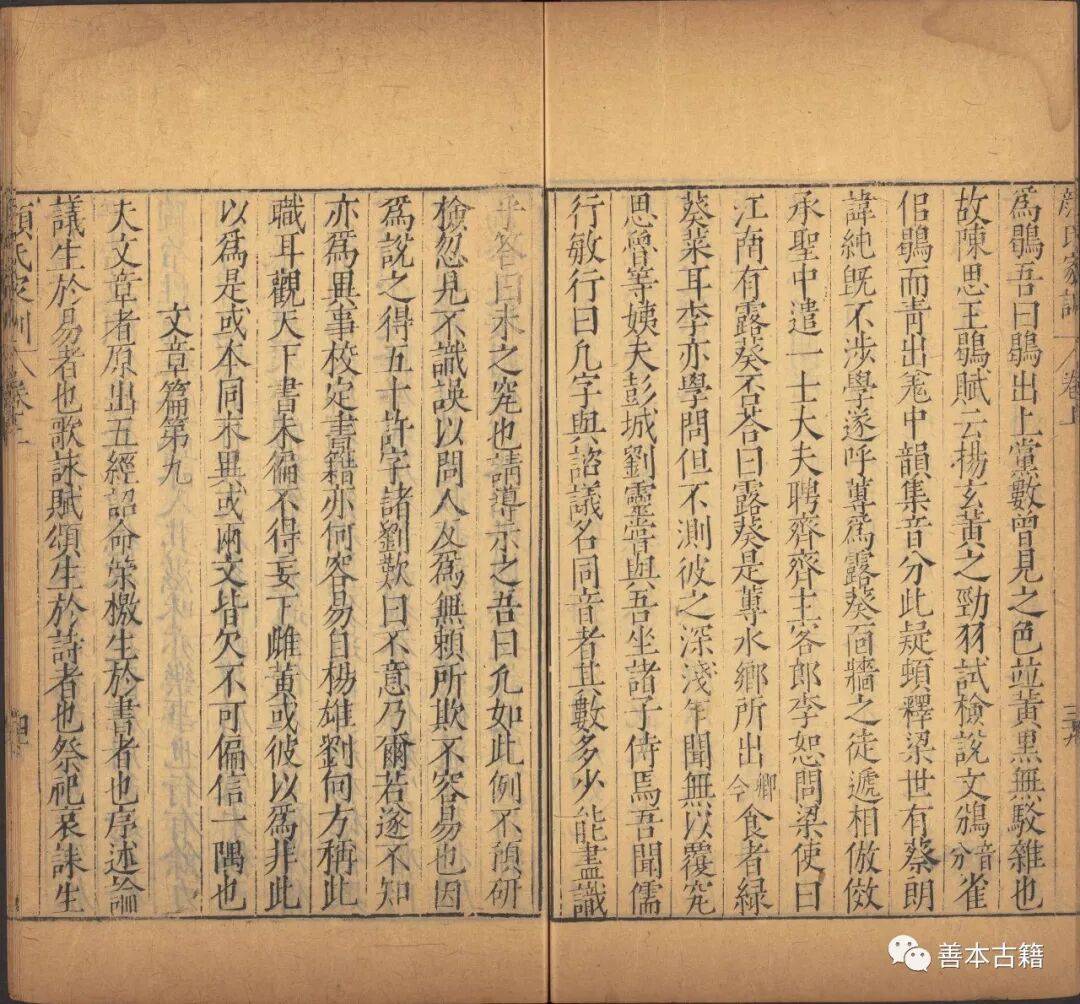 顏氏家訓 卷上 三九
為鶡吾曰鶡出上黨數曾見之色並黃黑無駁雜也
故陳思王鶡賦云楊玄黃之勁羽試檢說文鳻音分雀
侣鶡而青出羌中韻集音分此疑頓釋梁世有蔡朗
諱純旣不涉學遂呼蓴為露葵靣牆之徒遞相倣傚
承聖中遣一士大夫聘齊齊主客郎李恕問梁使曰
江南有露葵否荅曰露葵是蓴水鄉所出今鄉食者緑
葵菜耳李亦學問但不測彼之深淺乍聞無以覆究
思魯等姨夫彭城劉靈嘗與吾坐諸子侍焉吾聞儒
行敏行曰凡字與諮議名同音者其數多少能盡識
乎答曰未之究也請導示之吾曰凡如此例不預研
檢忽見不識誤以問人反為無賴所欺不容易也因
為說之得五十許字諸劉歎曰不意乃爾若遂不知
亦為異事校定書籍亦何容易自楊雄劉向方稱此
職耳觀天下書未徧不得妄下雌黃或彼以為非此
以為是或本同末異或兩文皆欠不可偏信一隅也
文章篇第九
夫文章者原出五經詔命策檄生於書者也序述論
議生於易者也歌詠賦頌生於詩者也祭祀哀誄生
顏氏家訓 卷上 四十
善本古籍